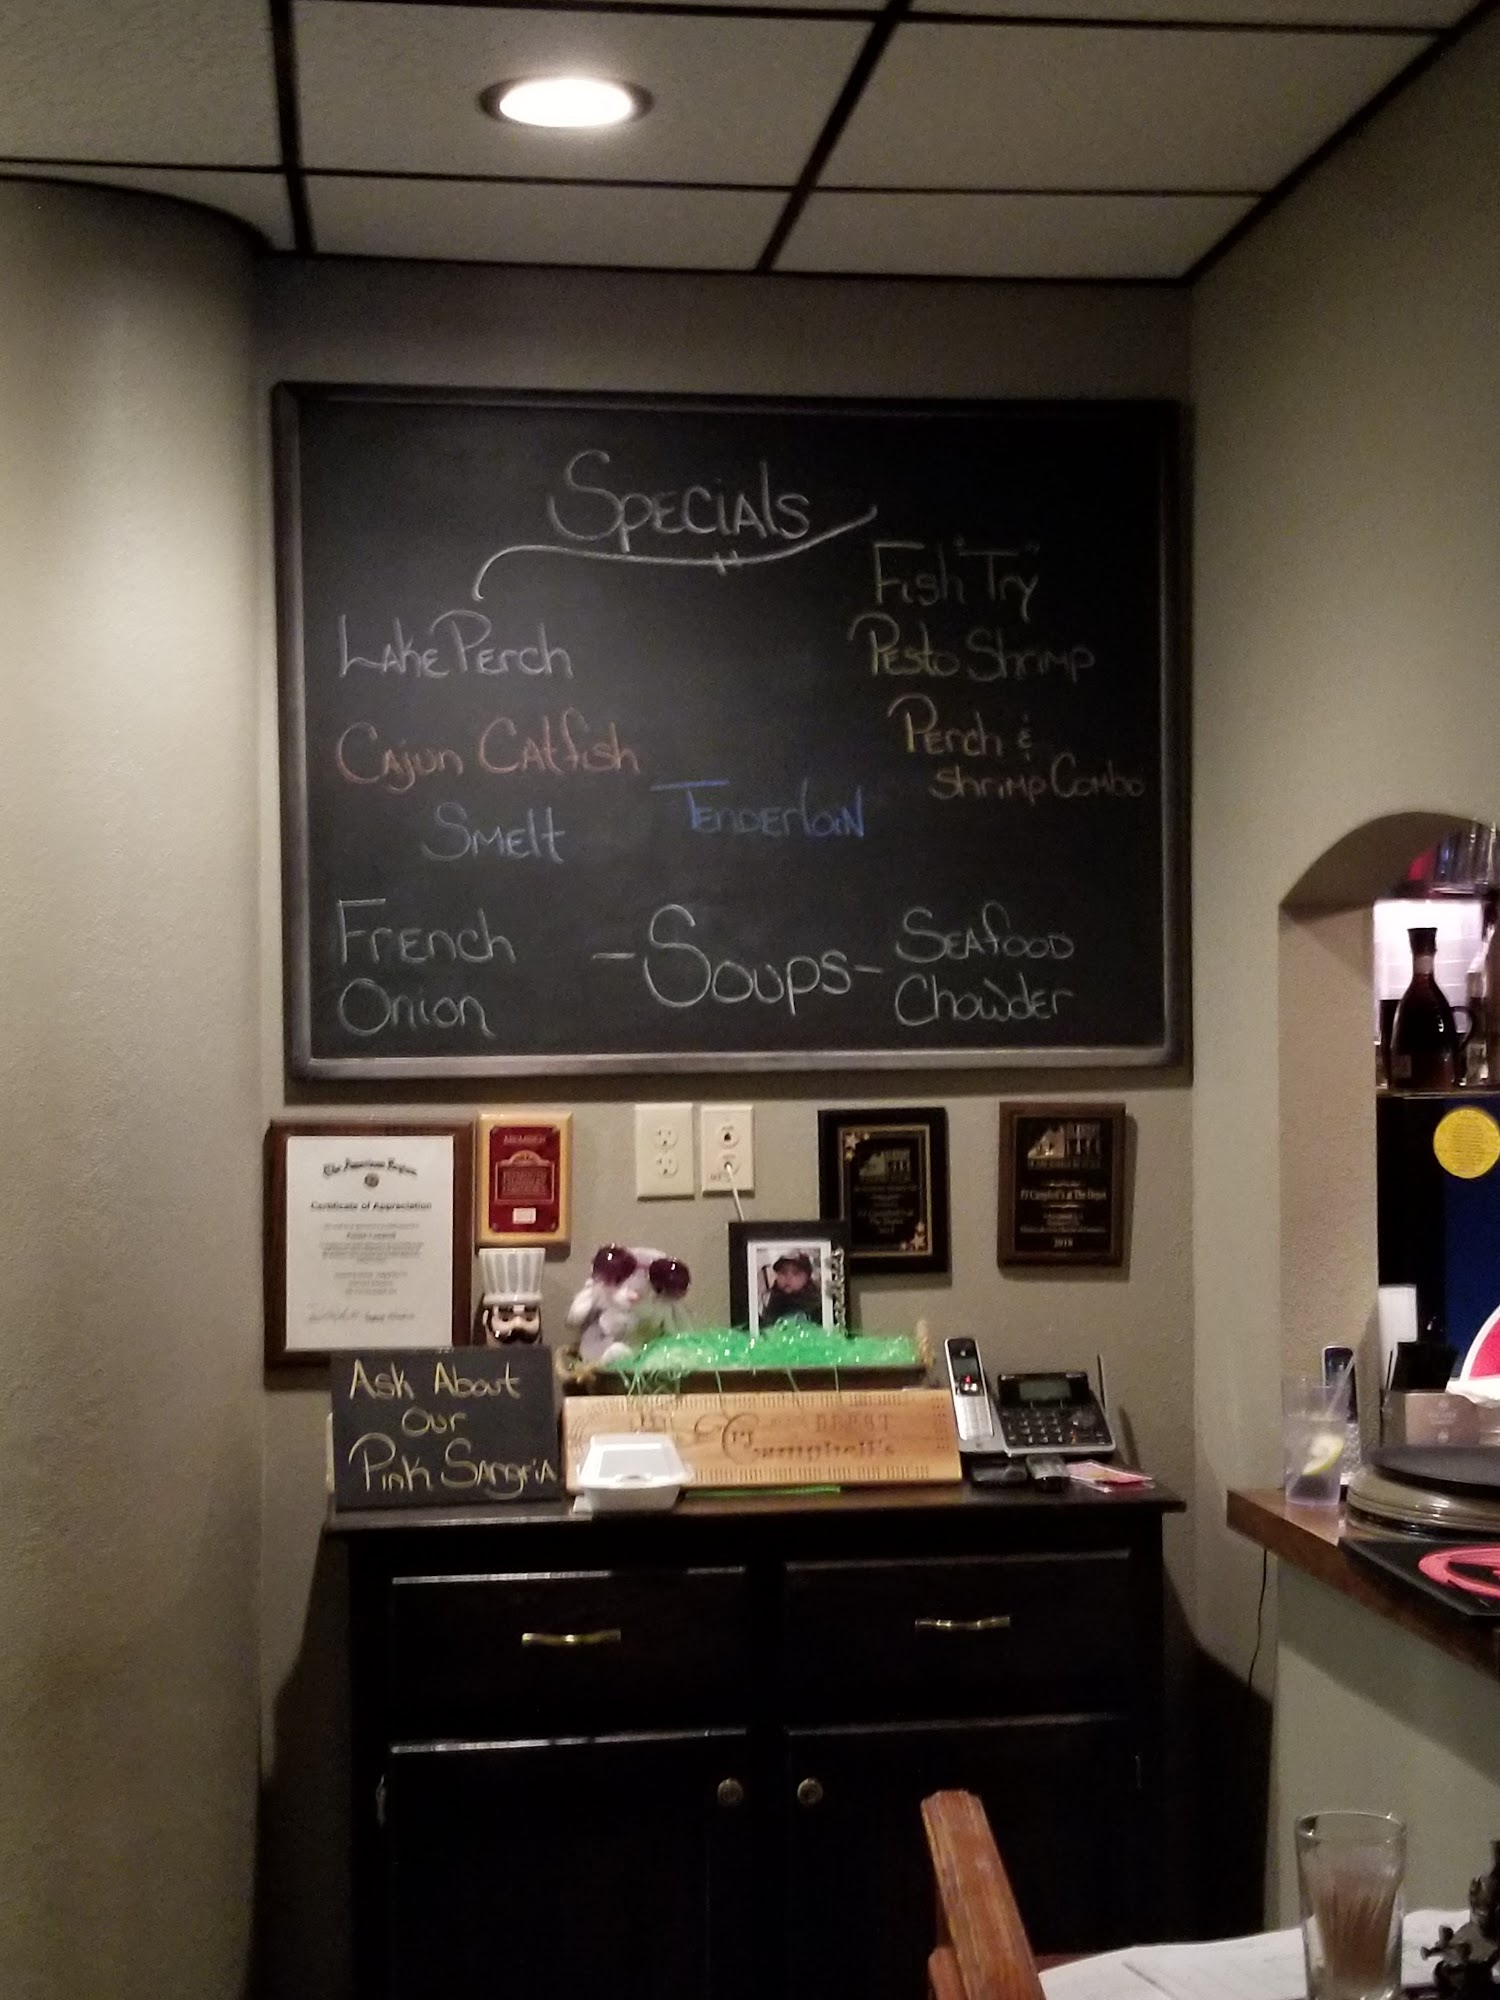 Specials
Lake Perch
Cajun Catfish
Smelt
Tenderloin
Fish "Try"
Pesto Shrimp
Perch &
Shrimp Combo
-Soups-
French
Onion
Seafood
Chowder
The American Legion
Certificate of Appreciation
MEMBER
PJ Campbell's at
The Depot
PJ Campbell's at The Depot
2018
Ask About
Our
Pink Sangria
PJ Campbell's